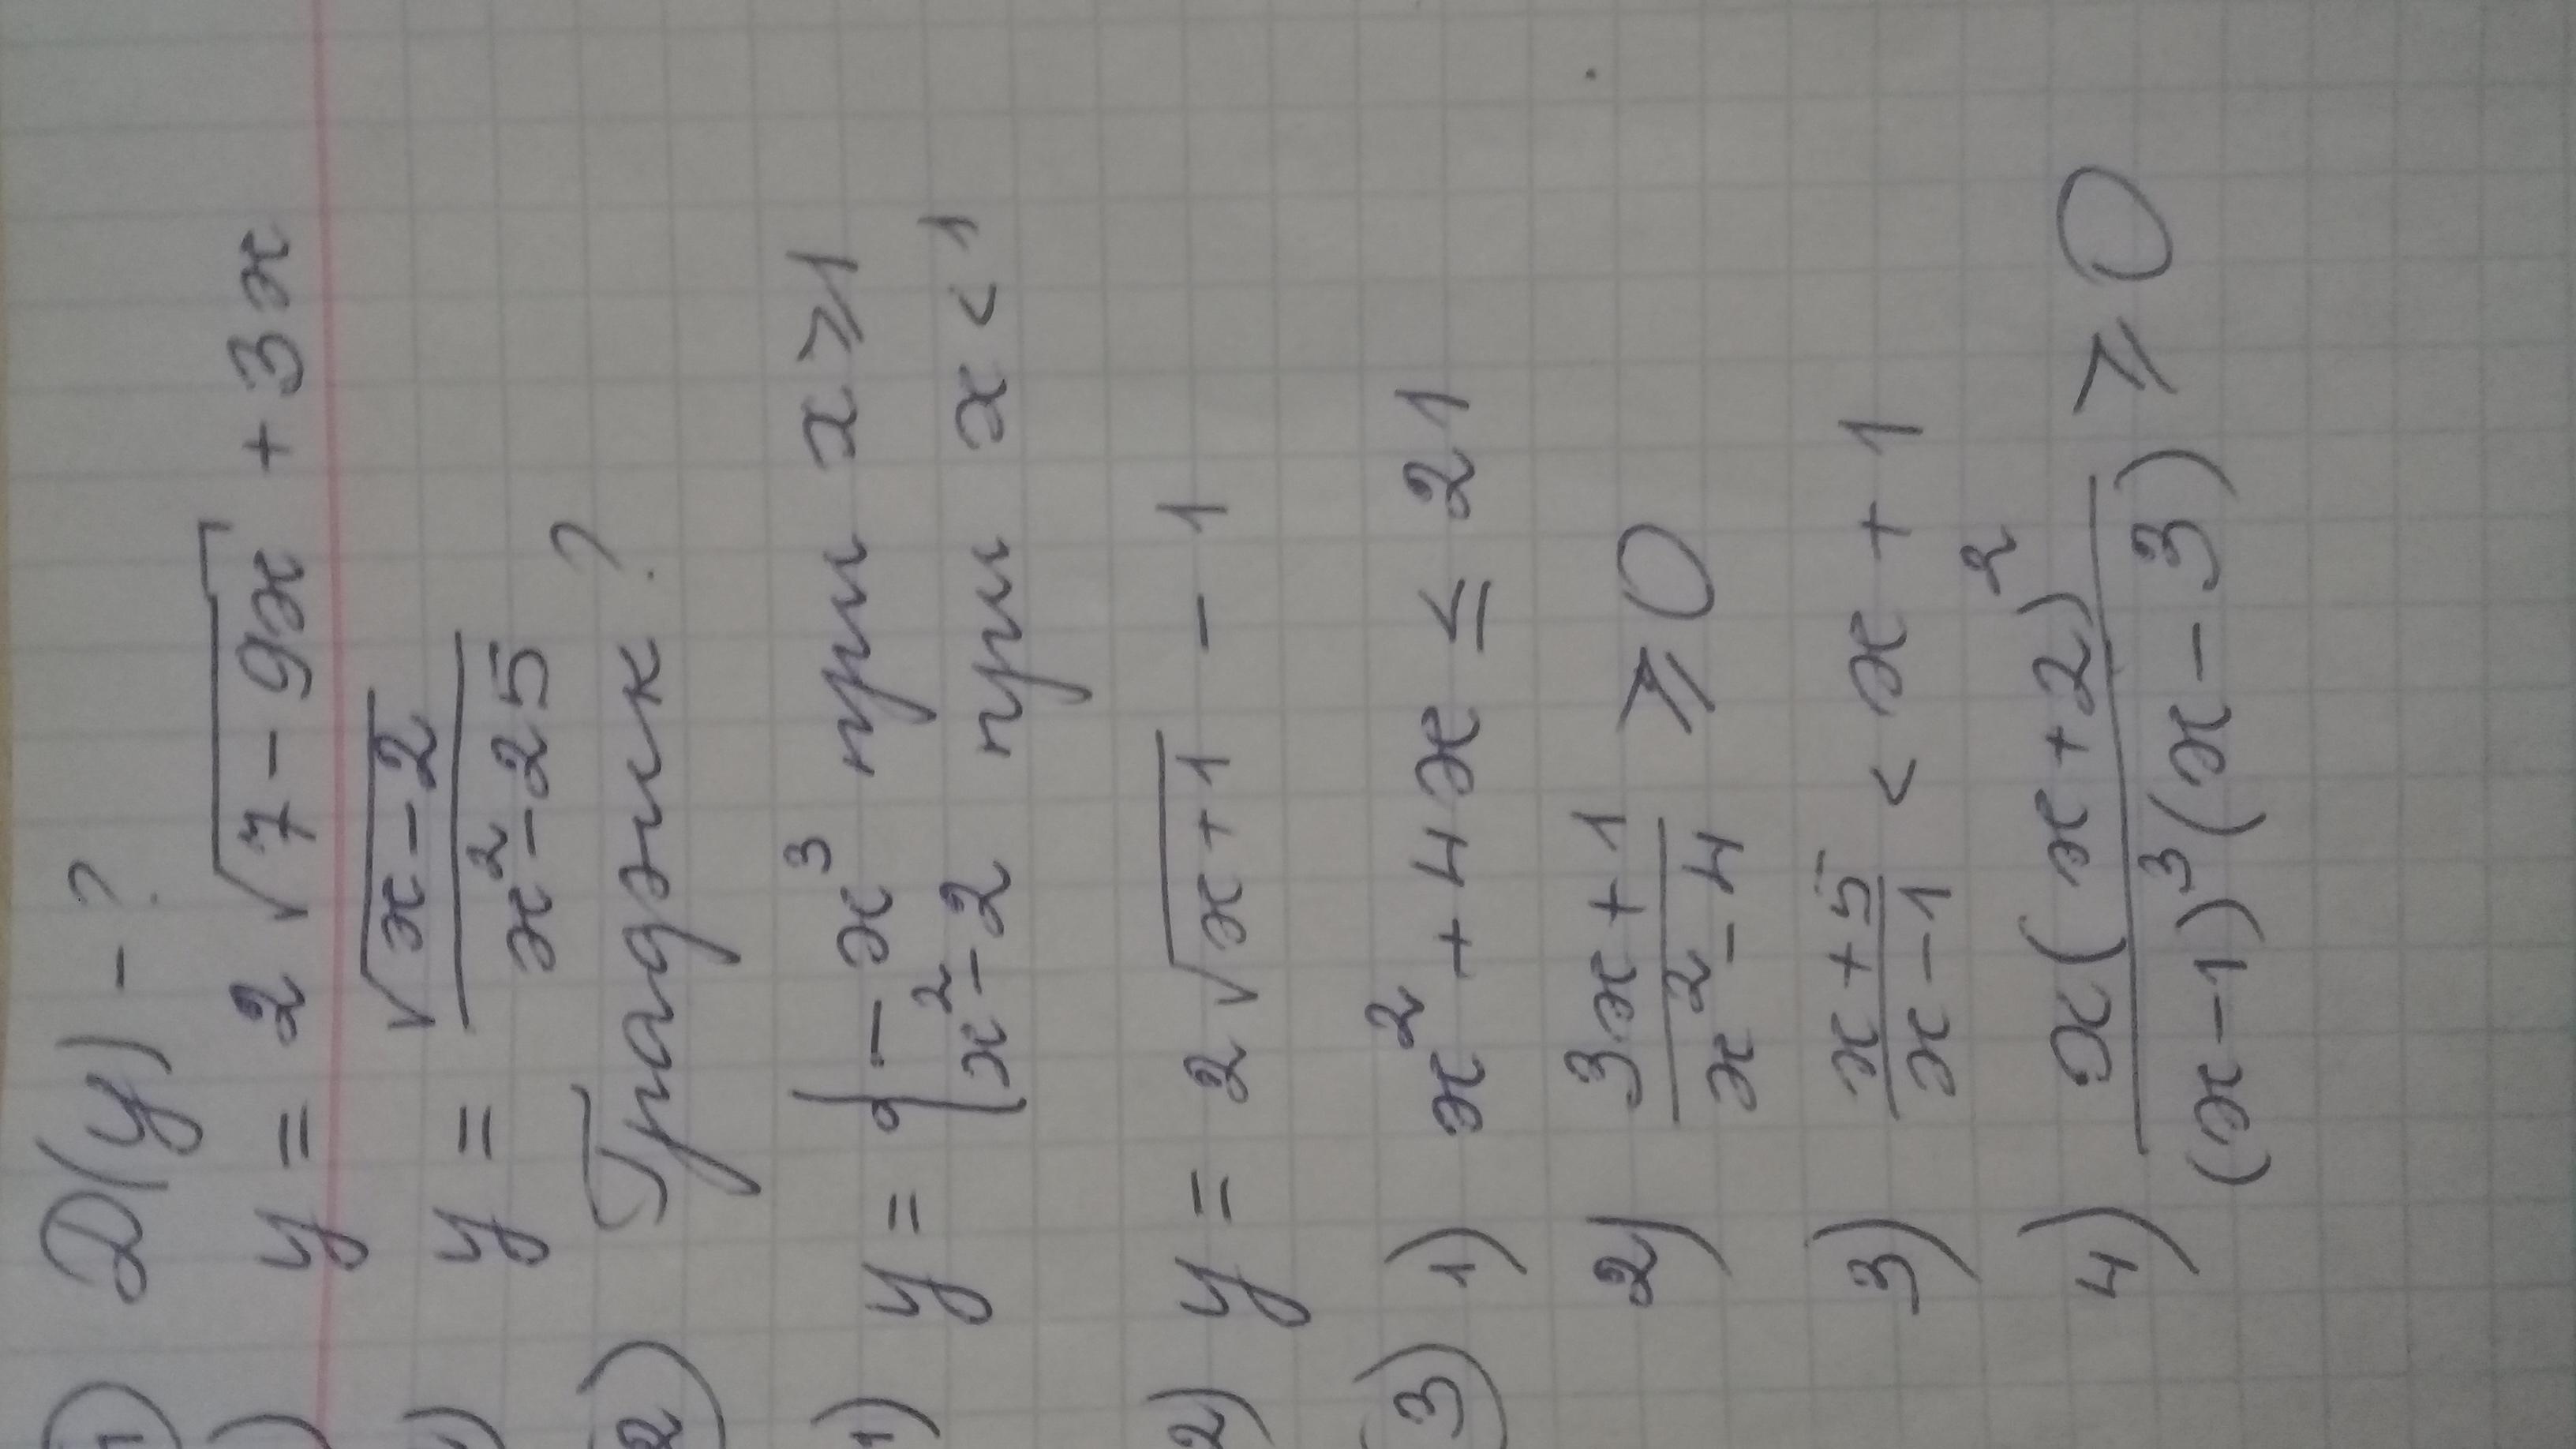 1) D(y) - ?
) y = 2√(7-9x) + 3x
) y = √(x-2) / (x²-25)
2) График ?
1) y = { -x³ при x⩾1
x²-2 при x<1
2) y = 2√(x+1) - 1
3) 1) x² + 4x ≤ 21
2) (3x+1)/(x²-4) ⩾ 0
3) (x+5)/(x-1) < x+1
4) x(x+2)² / (x-1)³(x-3) ⩾ 0